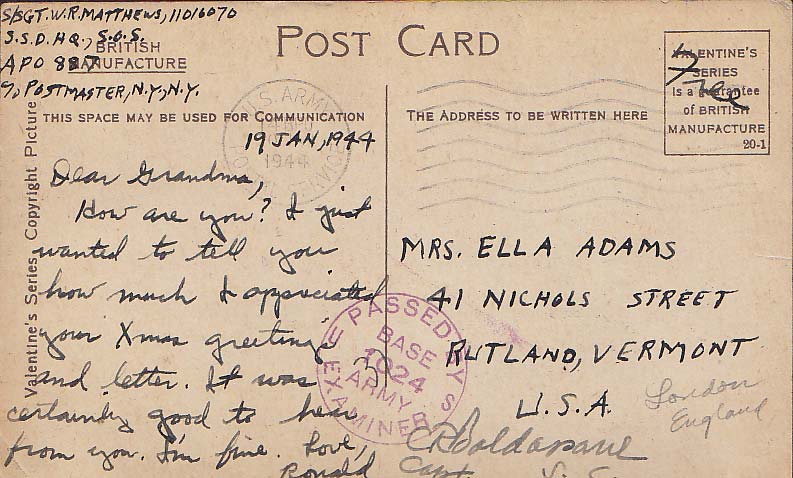 S/SGT. W.R. MATTHEWS, 11016070
S.S.D. HQ., S.O.S.
APO 887
c/o POSTMASTER, N.Y., N.Y.
BRITISH
MANUFACTURE
POST CARD
VALENTINE'S
SERIES
Is a guarantee
of BRITISH
MANUFACTURE
20-1
Free
THIS SPACE MAY BE USED FOR Communication
THE ADDRESS TO BE WRITTEN HERE
Valentine's Series Copyright Picture
U.S. ARMY
1944
19 JAN, 1944
Dear Grandma,
How are you? I just
wanted to tell you
how much I appreciated
your Xmas greeting
and letter. It was
certainly good to hear
from you. I'm fine. Love,
Ronald
MRS. ELLA ADAMS
41 NICHOLS STREET
RUTLAND, VERMONT
U.S.A.
London
England
PASSED BY
BASE
1024
ARMY
EXAMINER
Capt.